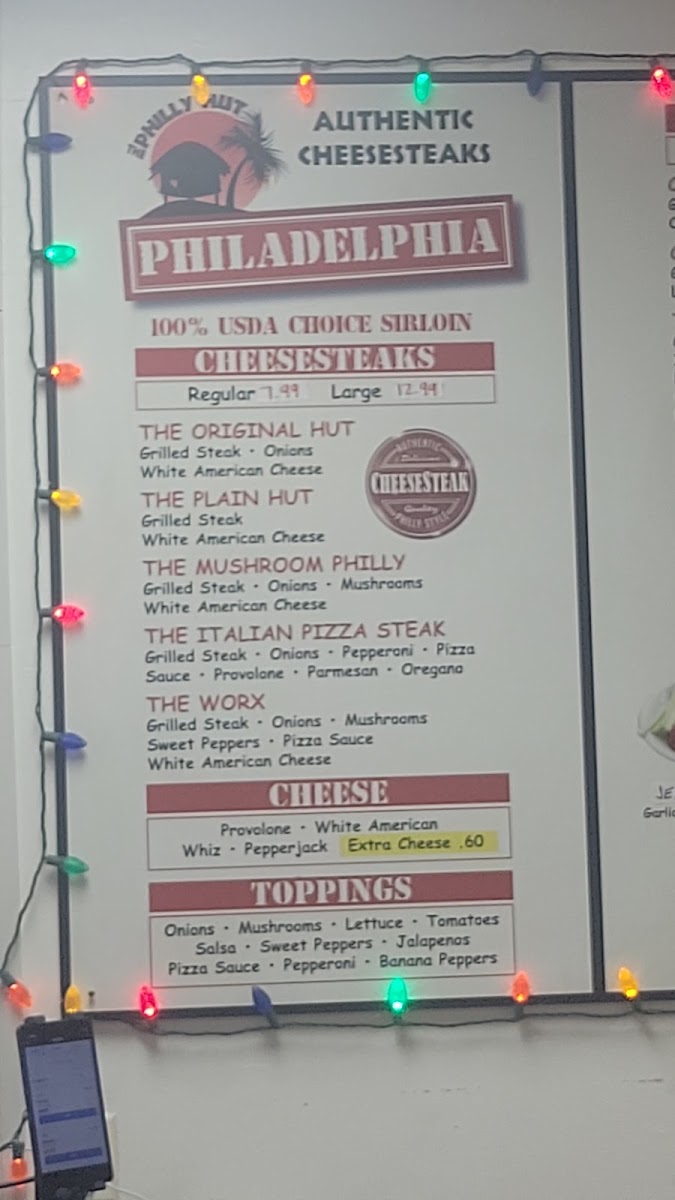 THE PHILLY HUT
AUTHENTIC
CHEESESTEAKS
PHILADELPHIA
100% USDA CHOICE SIRLOIN
CHEESESTEAKS
Regular 7.99 Large 12.99
THE ORIGINAL HUT
Grilled Steak • Onions
White American Cheese
AUTHENTIC
CHEESESTEAK
Quality
PHILLY STYLE
THE PLAIN HUT
Grilled Steak
White American Cheese
THE MUSHROOM PHILLY
Grilled Steak • Onions • Mushrooms
White American Cheese
THE ITALIAN PIZZA STEAK
Grilled Steak • Onions • Pepperoni • Pizza
Sauce • Provolone • Parmesan • Oregano
THE WORX
Grilled Steak • Onions • Mushrooms
Sweet Peppers • Pizza Sauce
White American Cheese
CHEESE
Provolone • White American
Whiz • Pepperjack Extra Cheese .60
TOPPINGS
Onions • Mushrooms • Lettuce • Tomatoes
Salsa • Sweet Peppers • Jalapenos
Pizza Sauce • Pepperoni • Banana Peppers